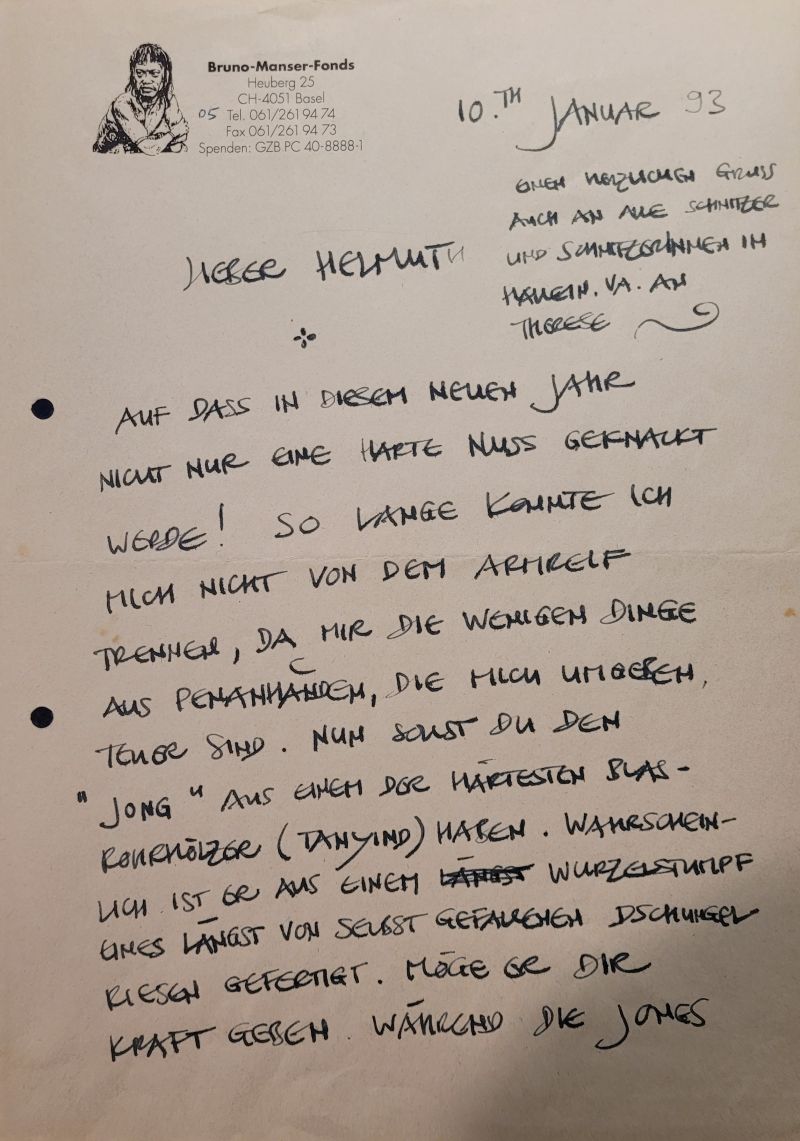 Bruno-Manser-Fonds
Heuberg 25
CH-4051 Basel
05 Tel. 061/261 94 74
Fax 061/261 94 73
Spenden: GZB PC 40-8888-1
10.TH JANUAR 93
EINEN HERZLICHEN GRUSS
AUCH AN ALLE SCHNITZER
UND SCHNITZERINNEN IN
HALLEIN. VA. AN
THERESE
LIEBER HELMUTH
AUF DASS IN DIESEM NEUEN JAHR
NICHT NUR EINE HARTE NUSS GEKNACKT
WERDE! SO LANGE KONNTE ICH
MICH NICHT VON DEM ARMREIF
TRENNEN, DA MIR DIE WENIGEN DINGE
AUS PENANHÄNDEN, DIE MICH UMGEBEN,
TEUER SIND. NUN SOLLST DU DEN
"JONG" AUS EINEM DER HÄRTESTEN BLAS-
ROHRHÖLZER (TANYIND) HABEN. WAHRSCHEIN-
LICH IST ER AUS EINEM LÄNGST WURZELSTUMPF
EINES LÄNGST VON SELBST GEFALLENEN DSCHUNGEL
RIESEN GEFERTIGT. MÖGE ER DIR
KRAFT GEBEN. WÄHREND DIE JONGS